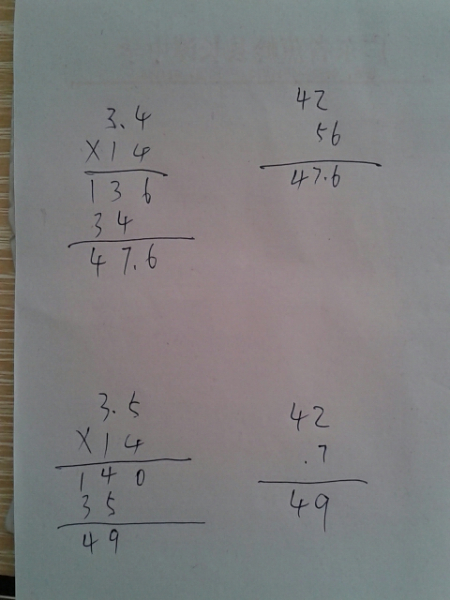 3.4
×14
136
34
47.6
42
56
47.6
3.5
×14
140
35
49
42
.7
49